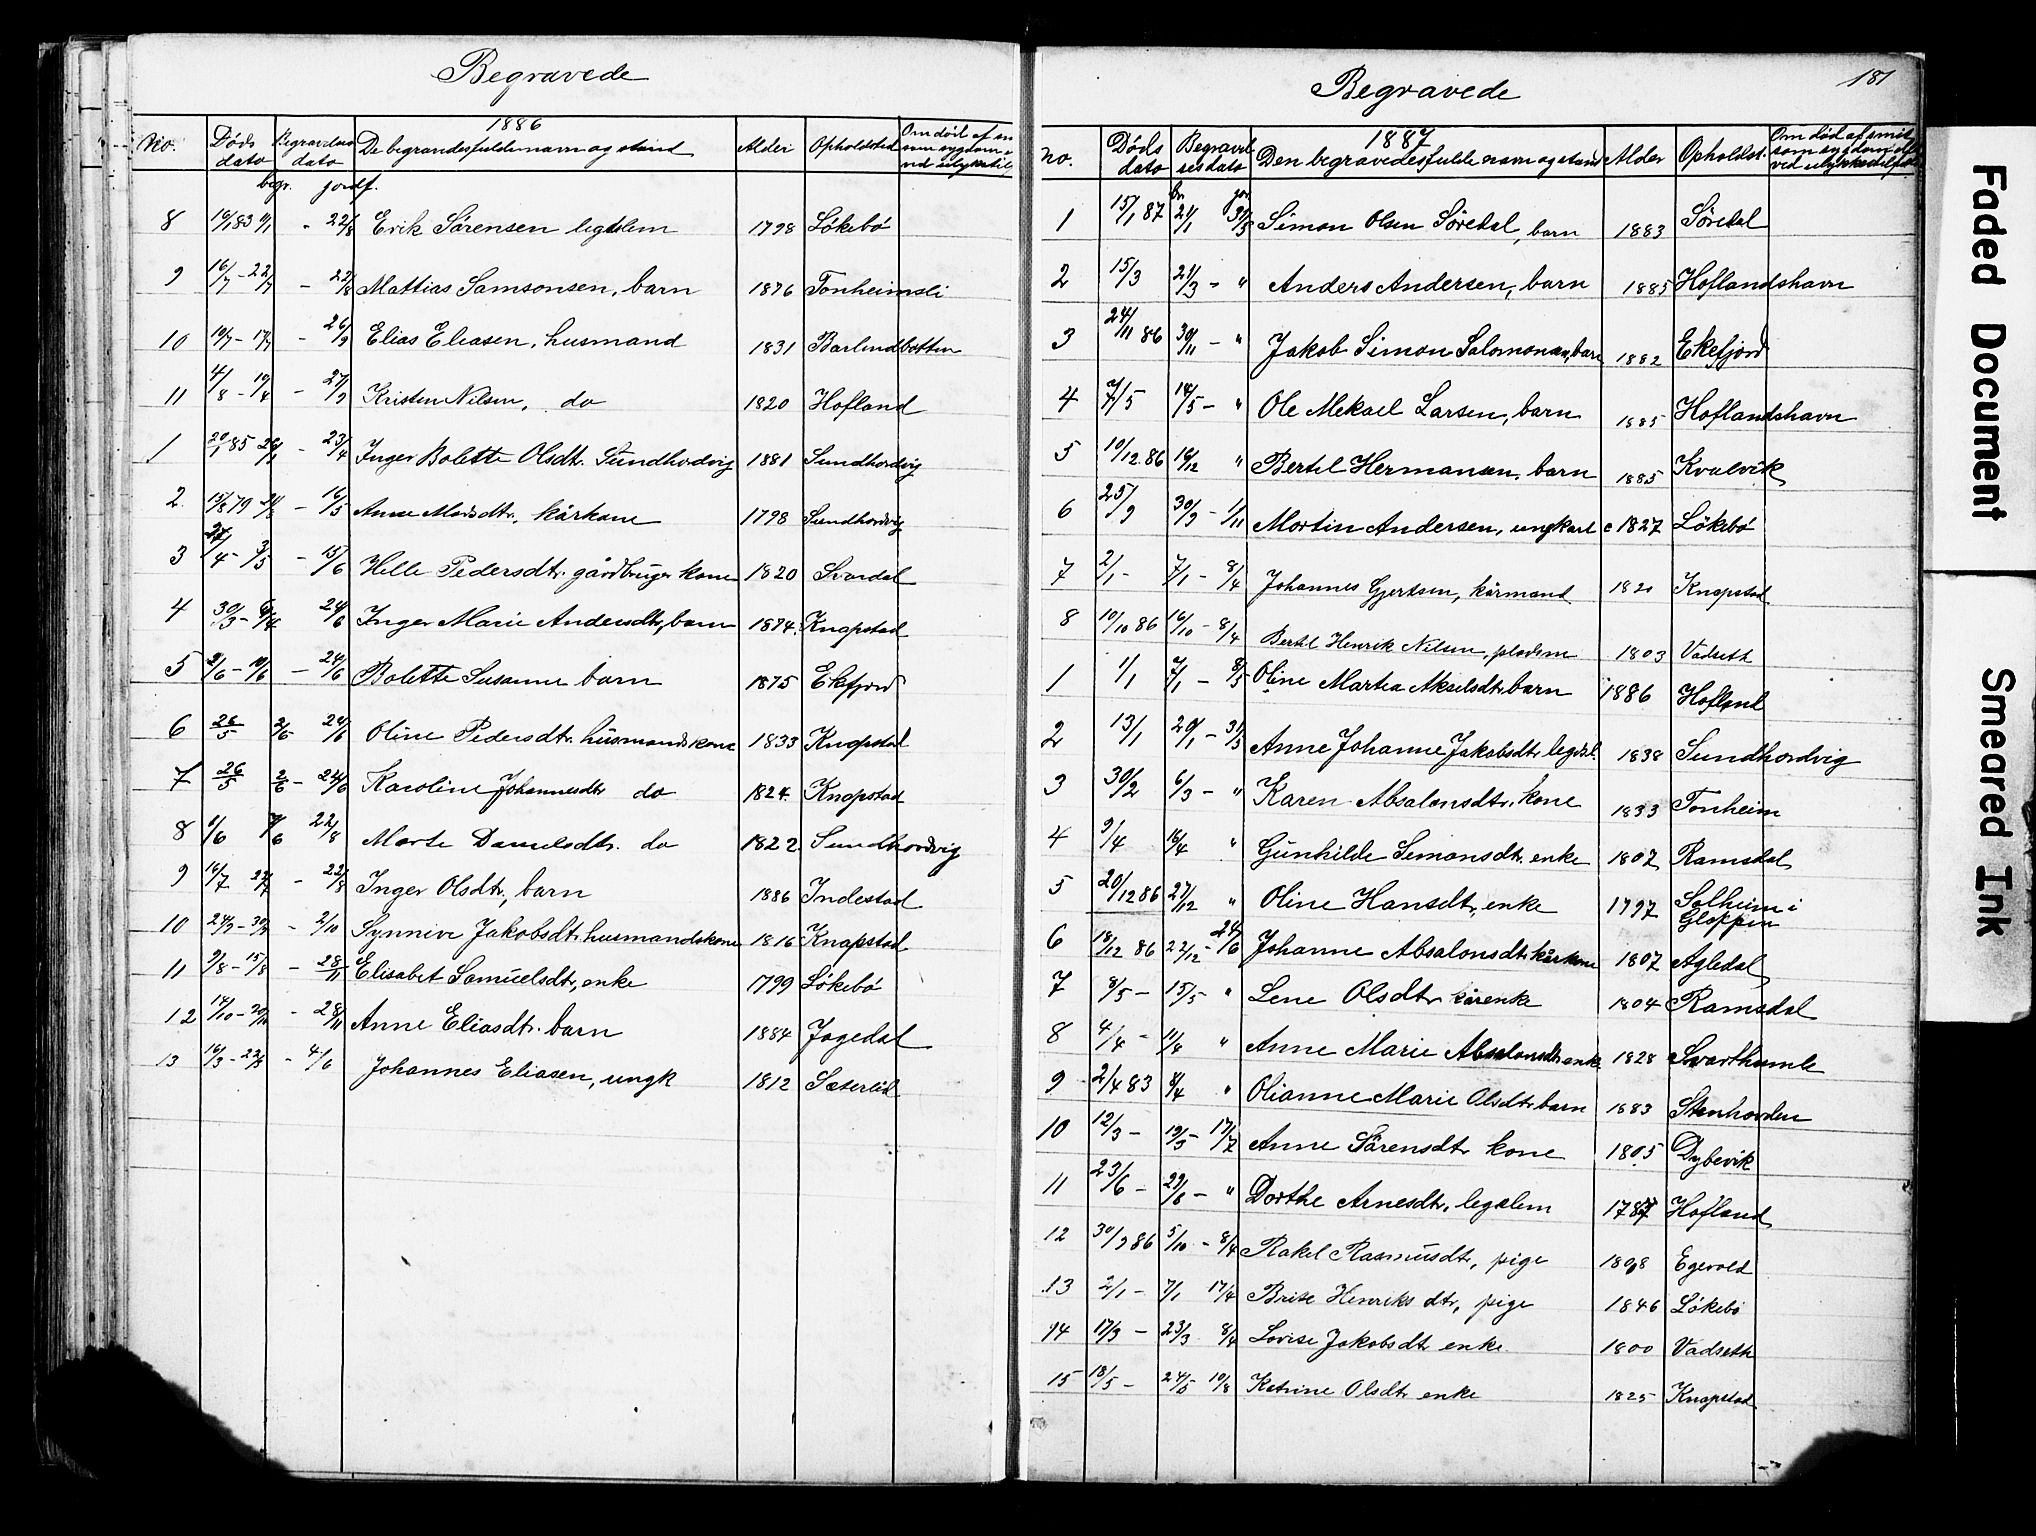 Begravede
1886
No. Døds dato Begravelses dato De begravedes fulde navn og stand Alder Opholdsted Om død af
begr. jordf.
8 16/1 83 - 22/8 Erik Sørensen legdslem 1798 Løkebø
9 16/7 - 22/7 - 22/8 Mattias Samsonsen, barn 1876 Tonheimsli
10 10/7 - 17/7 - 26/9 Elias Eliasen, husmand 1831 Barlindbotten
11 4/8 - 10/8 - 27/9 Kristen Nilsen, do 1820 Hofland
1 20/1 85 - 23/4 Inger Bolette Olsdtr. Sundhordvig 1881 Sundhordvig
2 15/8 79 - 16/5 Anne Madsdtr. kårkone 1798 Sundhordvig
3 27/4 - 3/5 - 15/6 Helle Pedersdtr. gårdbruger kone 1820 Svardal
4 30/3 - 6/4 24/6 Inger Marie Andersdtr, barn 1874. Knapstad
5 2/6 - 10/6 - 24/6 Bolette Susanne barn 1875 Ekefjord
6 26/5 2/6 24/6 Oline Pedersdtr. husmandskone 1833 Knapstad
7 26/5 2/6 - 24/6 Karoline Johannesdtr do 1824. Knapstad
8 1/6 7/6 22/8 Marte Danielsdtr. do 1822 Sundhordvig
9 16/7 22/7 - 22/8 Inger Olsdtr, barn 1886 Indestad
10 24/9 - 30/9 - 2/10 Synnive Jakobsdtr husmandskone 1816 Knapstad
11 9/8 - 15/8 - 28/11 Elisabet Samuelsdtr, enke 1799 Løkebø
12 14/10 - 20/10 - 28/11 Anne Eliasdtr. barn 1884 Jagedal
13 16/3 - 22/3 - 4/6 Johannes Eliasen, ungk 1812 Sæterlid
Begravede
181
1887
No. Døds dato Begravelsesdato Den begravedes fulde navn og stand Alder Opholdst. Om død af smitsom sygdom el. ved ulykkestilfælde
1 15/1 87 21/1 31/5 Simon Olsen Søredal, barn 1883 Søredal
2 15/3 21/3 - " Anders Andersen, barn 1885 Hoflandshavn
3 24/11 86 30/11 - " Jakob Simon Salomonsen, barn 1882 Ekefjord
4 7/5 14/5 - " Ole Mekael Larsen, barn 1885 Hoflandshavn
5 10/12 86 16/12 " Bertel Hermansen, barn 1885 Kvalvik
6 25/9 30/9 - 1/11 Mortin Andersen, ungkarl 1827 Løkebø
7 2/1 - 7/1 - 8/4 Johannes Gjertsen, kårmand 1820 Knapstad
8 10/10 86 16/10 - 8/4 Bertel Henrik Nilsen, 1803 Vadseth
1 1/1 7/1 - 8/5 Oline Martea Akselsdtr barn 1886 Hofland
2 13/1 20/1 - 31/5 Anne Johanne Jakobsdtr legdsl. 1838 Sundhordvig
3 30/2 6/3 - " Karen Absalonsdtr, kone 1833 Tonheim
4 9/4 16/4 " Gunhilde Simonsdtr. enke 1807 Ramsdal
5 20/12 86 27/12 " Oline Hansdtr, enke 1797 Solheim i
Gloppen
6 18/12 86 22/12 - 24/6 Johanne Absalonsdtr kårkone 1807 Agledal
7 8/5 - 15/5 " Lene Olsdtr kårenke 1804 Ramsdal
8 4/4 - 11/4 " Anne Marie Absalonsdtr enke 1828 Svarthumle
9 2/4 83 8/4 " Olianne Marie Olsdtr barn 1883 Stenhovden
10 12/3 - 19/3 - 17/7 Anne Sørensdtr kone 1805 Dybevik
11 23/6 - 29/6 - " Dorthe Arnesdtr, legdlem 1787 Hofland
12 30/9 86 5/10 - 8/4 Rakel Rasmusdtr, pige 1808 Egevold
13 2/1 - 7/1 17/4 Brite Henriks dtr, pige 1846 Løkebø
14 17/3 - 23/3 8/4 Lovise Jakobsdtr enke 1800 Vadseth
15 18/5 - 24/5 10/8 Katrine Olsdtr enke 1825 Knapstad
Faded Document
Smeared Ink